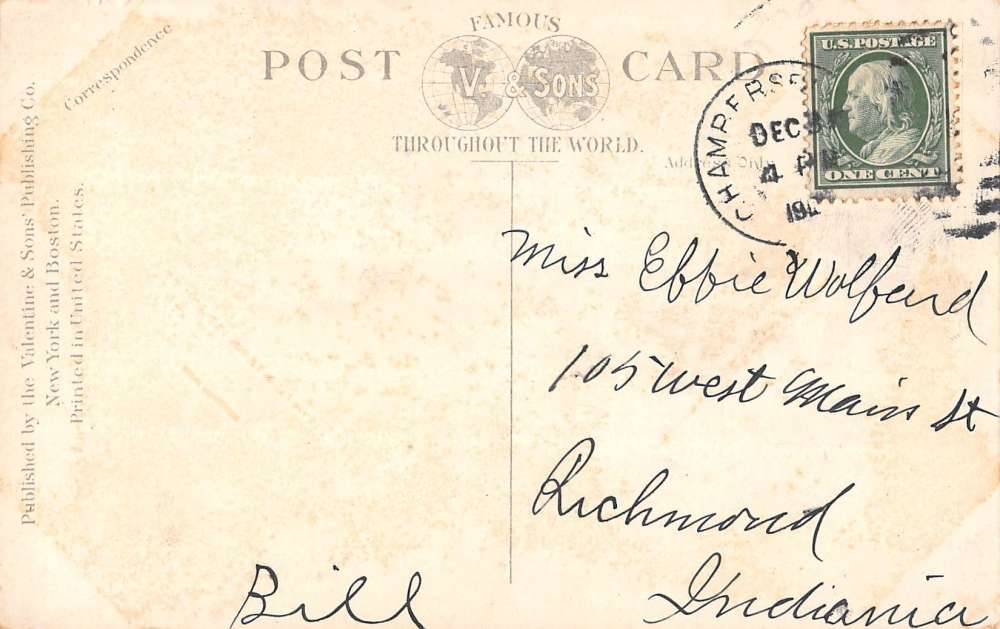 FAMOUS
POST V. & SONS CARD
THROUGHOUT THE WORLD.
Correspondence
Address Only
Published by the Valentine & Sons' Publishing Co.
New York and Boston.
Printed in United States.
DEC
4 PM
U.S. POSTAGE
ONE CENT
Miss Effie Wolfard
105 West Main St
Richmond
Indiania
Bill